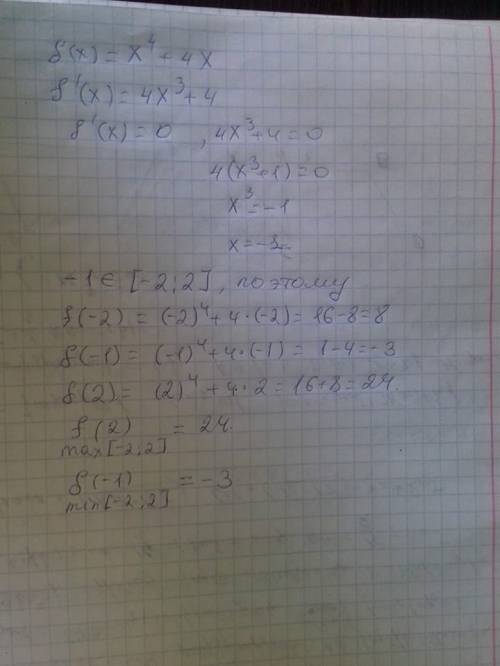 f(x) = x⁴ + 4x
f'(x) = 4x³ + 4
f'(x) = 0 , 4x³ + 4 = 0
4(x³+1) = 0
x³ = -1
x = -1
-1 ∈ [-2; 2], поэтому
f(-2) = (-2)⁴ + 4·(-2) = 16-8=8
f(-1) = (-1)⁴ + 4·(-1) = 1-4=-3
f(2) = (2)⁴ + 4·2 = 16+8=24.
f(2) = 24.
max[-2;2]
f(-1) = -3
min[-2;2]